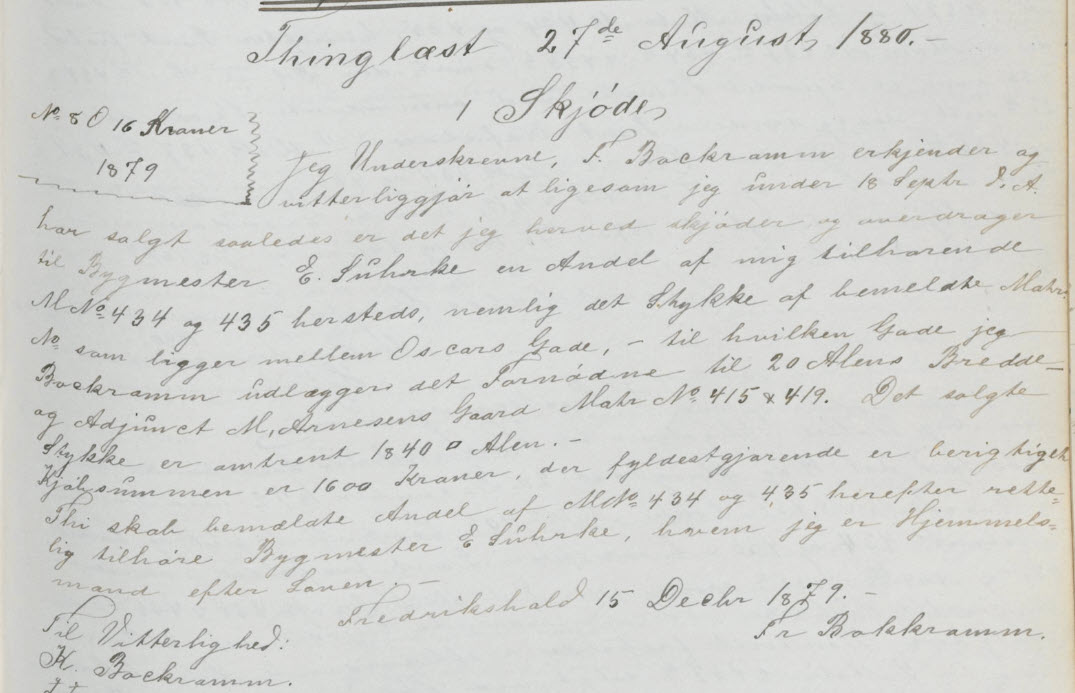 Thinglæst 27de August 1880.-
1 Skjöde,
No 8 O 16 Kroner
1879
Jeg Underskrevne, F. Bockramm erkjender og
vitterliggjør at ligesom jeg under 18 Septr d. A.
har solgt saaledes er det jeg herved skjøder og overdrager
til Bygmester E. Suhrke en Andel af mig tilhørende
M No 434 og 435 hersteds, nemlig det Stykke af bemeldte Matr.
No som ligger mellem Oscars Gade, - til hvilken Gade jeg
Bockramm udlægger det Fornødne til 20 Alens Bredde -
og Adjunct M. Arnesens Gaard Matr No 415 & 419. Det solgte
Stykke er omtrent 1840 □ Alen. -
Kjøbsummen er 1600 Kroner, der fyldestgjørende er berigtiget
Thi skal bemældte Andel af M No 434 og 435 herefter rette=
lig tilhøre Bygmester E Suhrke, hvem jeg er Hjemmels=
mand efter Loven. -
Fredrikshald 15 Decbr 1879. -
Fr Bokkramm.
Til Vitterlighed:
K. Bockramm.